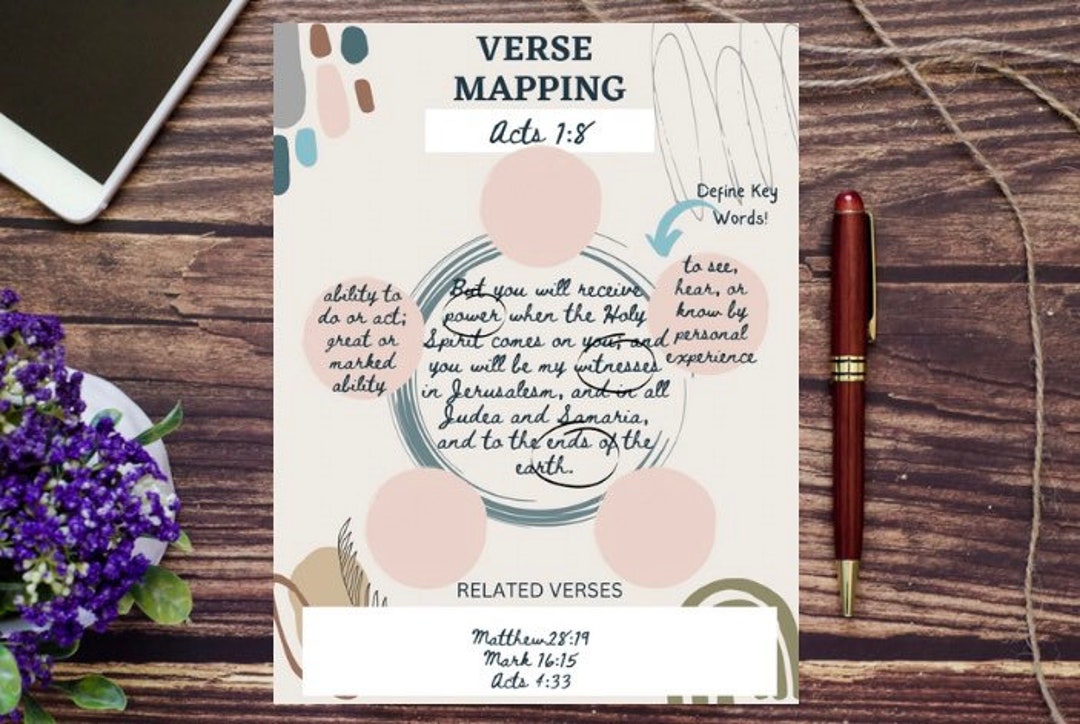 VERSE
MAPPING
Acts 1:8
Define Key
Words!
to see,
hear, or
know by
personal
experience
ability to
do or act;
great or
marked
ability
But you will receive
power when the Holy
Spirit comes on you; and
you will be my witnesses
in Jerusalesm, and in all
Judea and Samaria,
and to the ends of the
earth.
RELATED VERSES
Matthew28:19
Mark 16:15
Acts 4:33